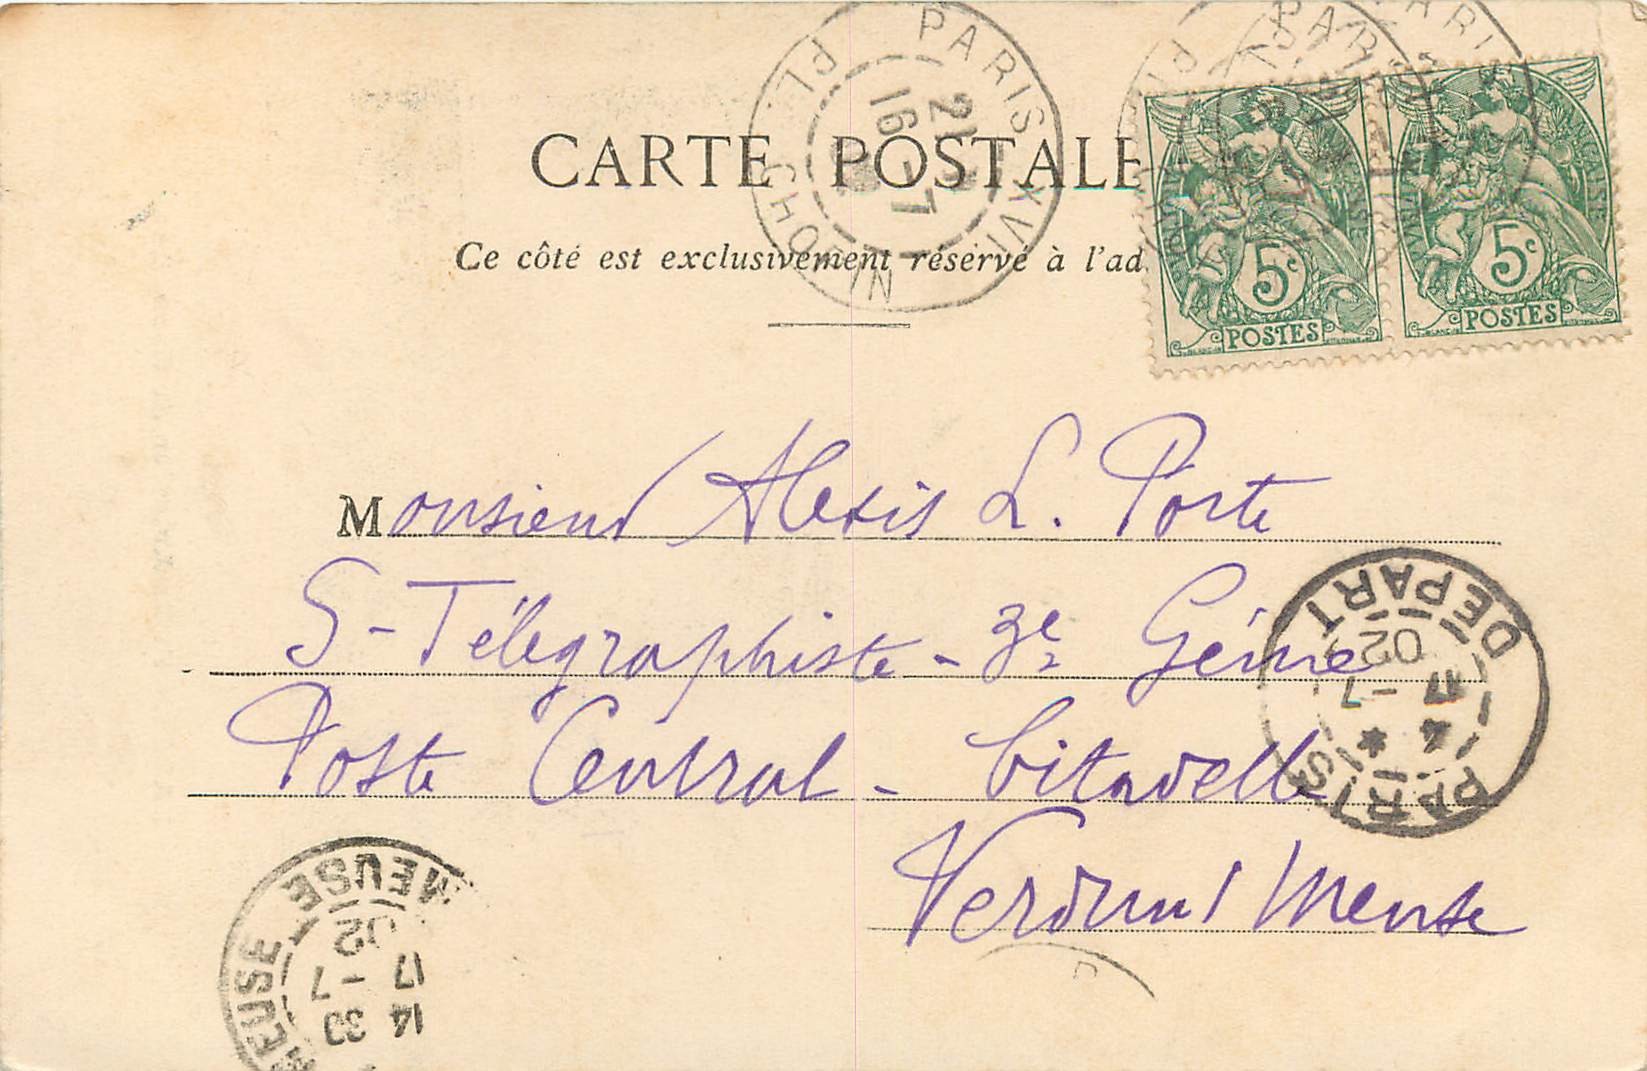 CARTE POSTALE
Ce côté est exclusivement réservé à l'ad
PARIS XVIII
PL. PICHON
21
16 -7
5c
POSTES
5c
POSTES
Monsieur Alexis L. Porte
S-Télégraphiste - 3e Génie
Poste Central - Citadelle
Verdun / Meuse
PARIS DEPART
4
17
-7
02
MEUSE
MEUSE
14 30
17 -7
02